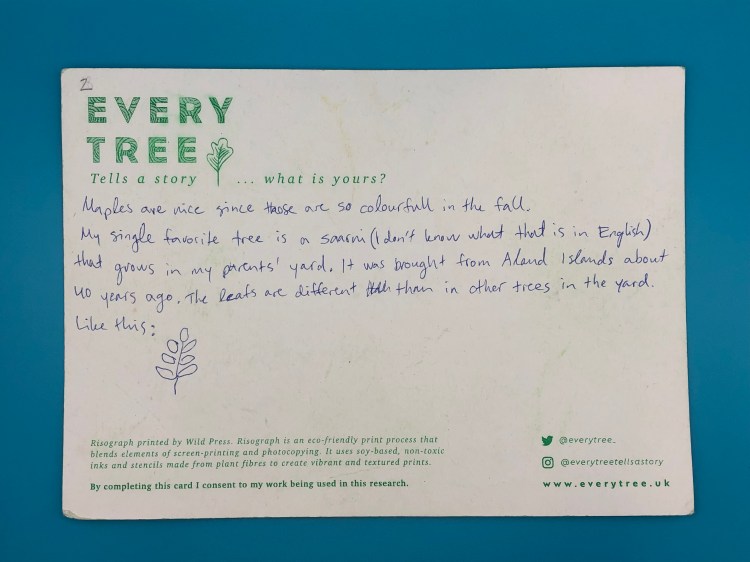 2
EVERY
TREE
Tells a story ... what is yours?
Maples are nice since those are so colourfull in the fall.
My single favorite tree is a saarni (I don't know what that is in English)
that grows in my parents' yard. It was brought from Aland Islands about
40 years ago. The leafs are different than in other trees in the yard.
Like this:
Risograph printed by Wild Press. Risograph is an eco-friendly print process that
blends elements of screen-printing and photocopying. It uses soy-based, non-toxic
inks and stencils made from plant fibres to create vibrant and textured prints.
By completing this card I consent to my work being used in this research.
@everytree_
@everytreetellsastory
www.everytree.uk